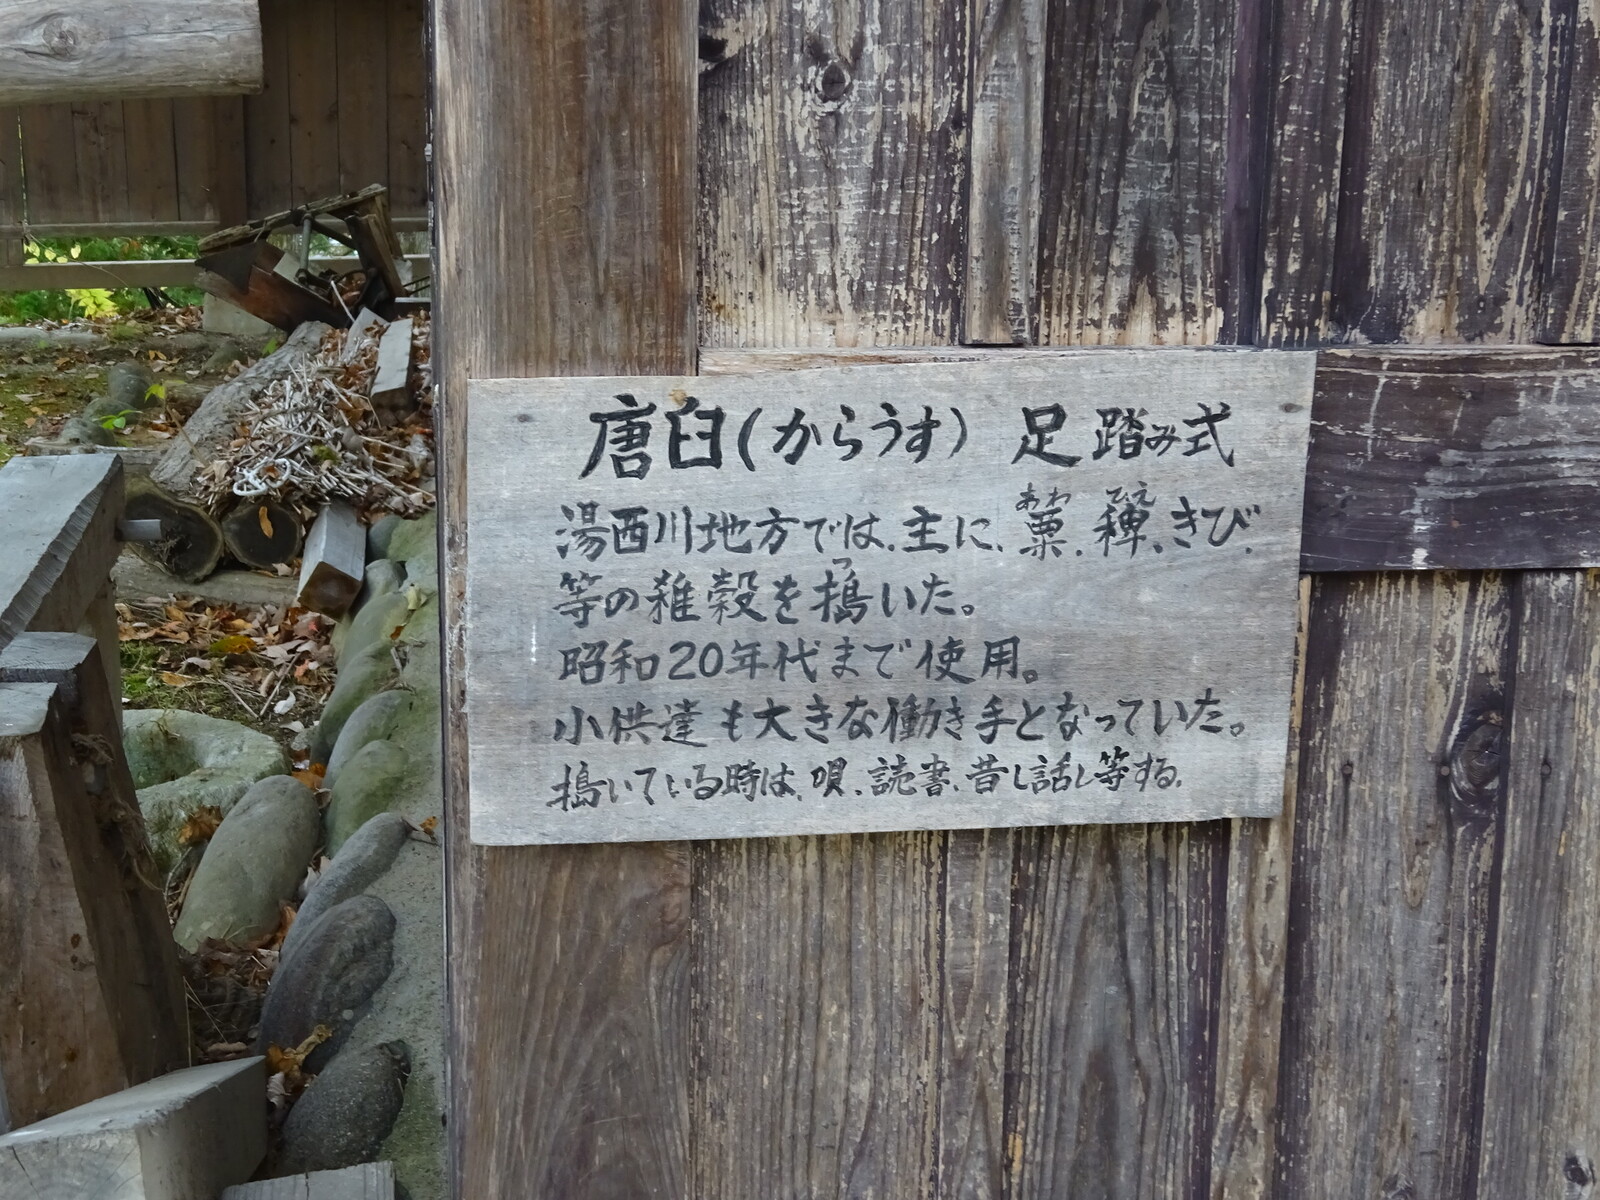 唐臼(からうす) 足踏み式
湯西川地方では、主に、粟、稗、きび、
あわ ひえ
等の雑穀を搗いた。
つ
昭和20年代まで使用。
小供達も大きな働き手となっていた。
搗いている時は、唄、読書、昔し話し等する。